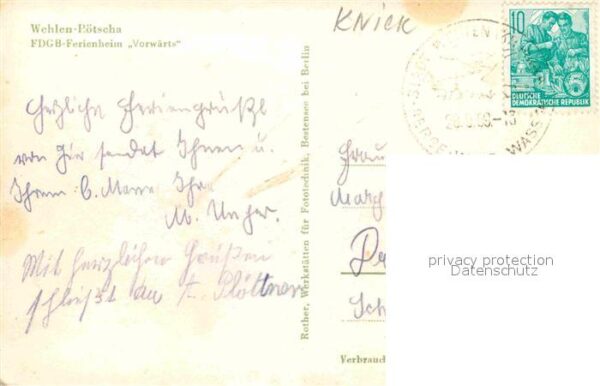 Wehlen-Pötscha
FDGB-Ferienheim „Vorwärts“
KNICK
10
DEUTSCHE
DEMOKRATISCHE REPUBLIK
Herzliche Feriengrüße
von hier sendet Ihnen u.
Ihrem l. Mann Ihr
M. Unger.
Mit herzlichen Grüßen
schließt an
Rother, Werkstätten für Fototechnik, Bestensee bei Berlin
Frau
Verbrauc
privacy protection
Datenschutz